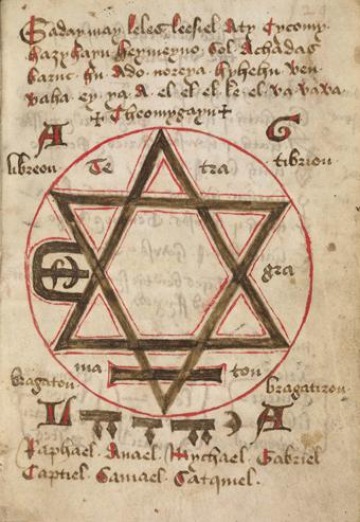 Saday may leles leesiel Aty Cycomy
hazy hayn heymeyno Sel Achadas
baruc hu Ado noreya hyhehu ven
vaha ey ya a el el el he el va vava
+ Theomygayn +
A G
libreon Te tra tibrion
gra
ma ton
bragaton bragatiron
L יהוה A
Raphael Anael Mychael Gabriel
Captiel Samael Satquiel